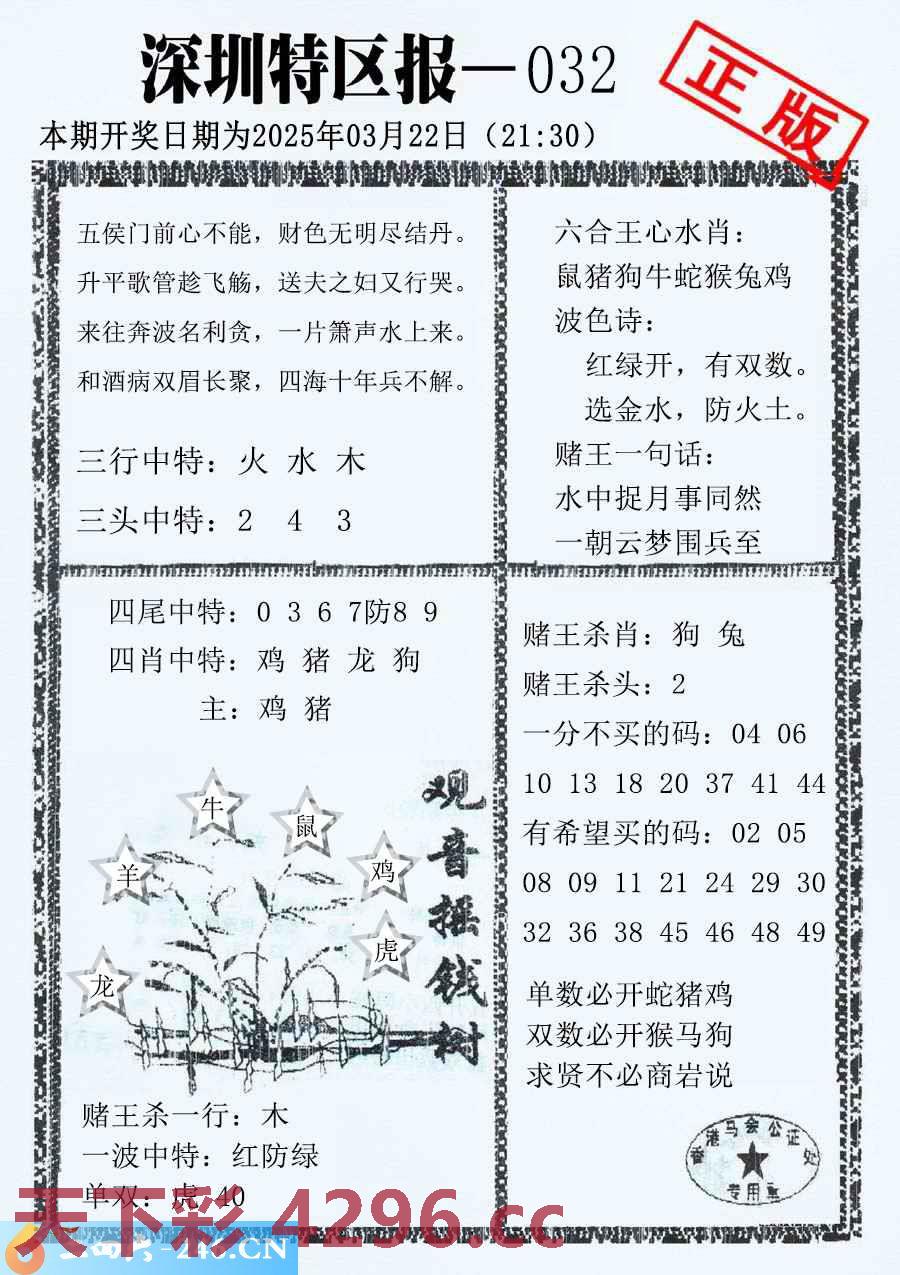 深圳特区报—032
正版
本期开奖日期为2025年03月22日（21:30）
五侯门前心不能，财色无明尽结丹。
升平歌管趁飞觞，送夫之妇又行哭。
来往奔波名利贪，一片箫声水上来。
和酒病双眉长聚，四海十年兵不解。
三行中特：火 水 木
三头中特：2 4 3
六合王心水肖：
鼠猪狗牛蛇猴兔鸡
波色诗：
红绿开，有双数。
选金水，防火土。
赌王一句话：
水中捉月事同然
一朝云梦围兵至
四尾中特：0 3 6 7防8 9
四肖中特：鸡 猪 龙 狗
主：鸡 猪
牛
鼠
羊
鸡
虎
龙
观音摇钱树
赌王杀一行：木
一波中特：红防绿
单双：虎 40
赌王杀肖：狗 兔
赌王杀头：2
一分不买的码：04 06
10 13 18 20 37 41 44
有希望买的码：02 05
08 09 11 21 24 29 30
32 36 38 45 46 48 49
单数必开蛇猪鸡
双数必开猴马狗
求贤不必商岩说
香港马会公证处
专用章
天下彩 4296.cc
246.CN